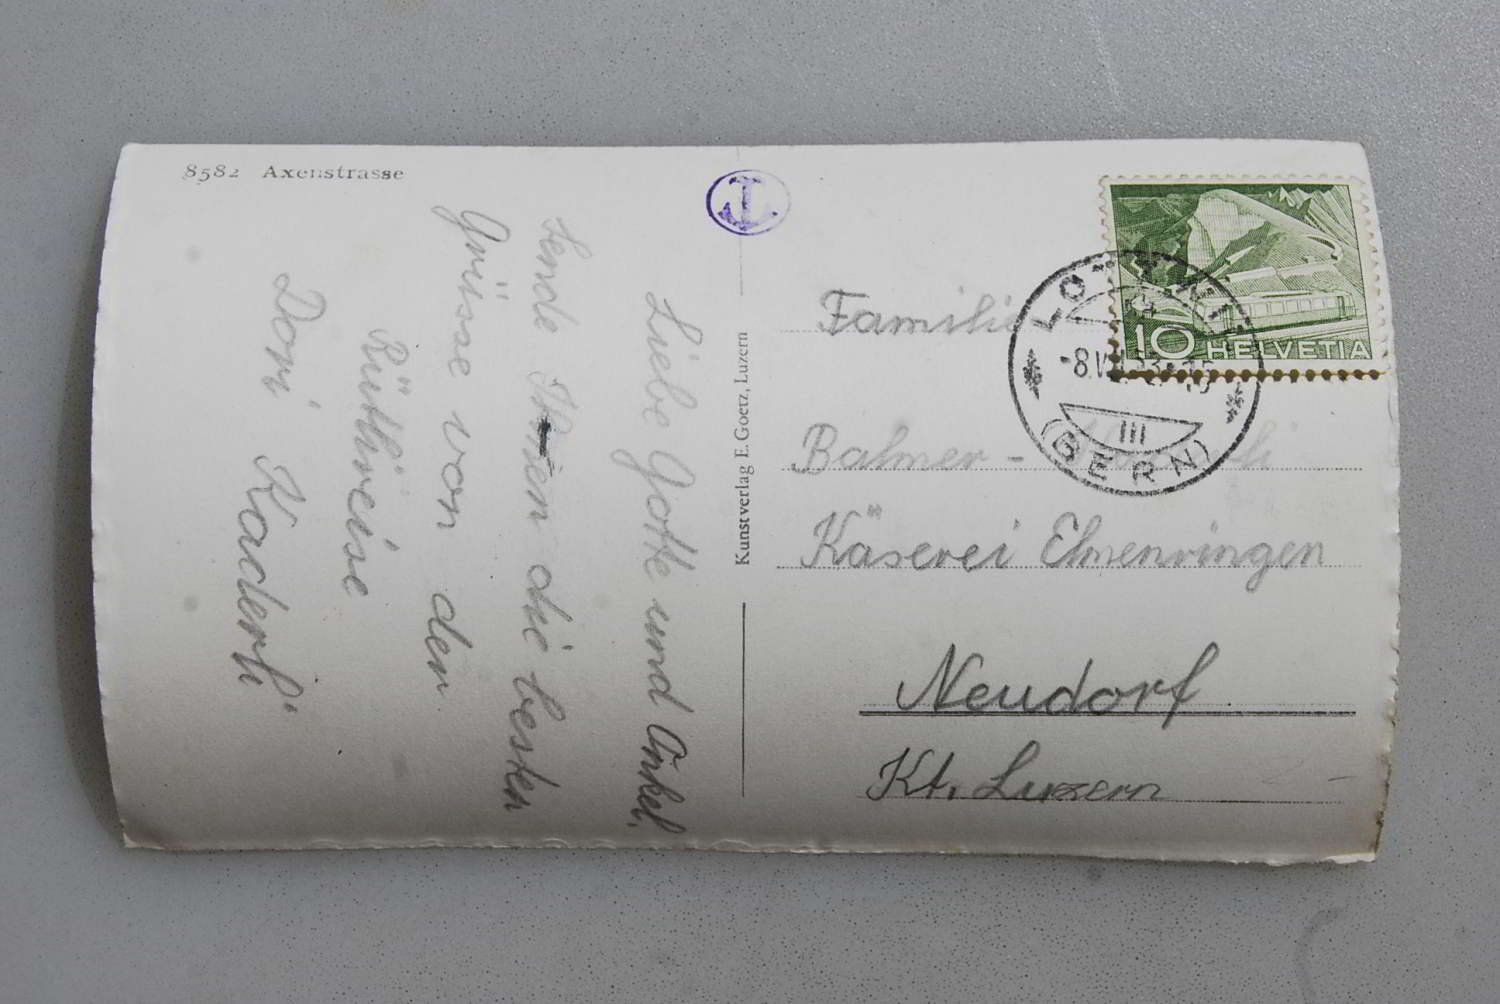 8582 Axenstrasse
Liebe Gotte und Onkel,
sende Ihnen die besten
Grüsse von der
Rütlireise
Dori Kaderli
Kunstverlag E. Goetz, Luzern
10 HELVETIA
-8.VII.53.
III
(BERN)
Familie
Balmer -
Käserei Elmenringen
Neudorf
Kt. Luzern